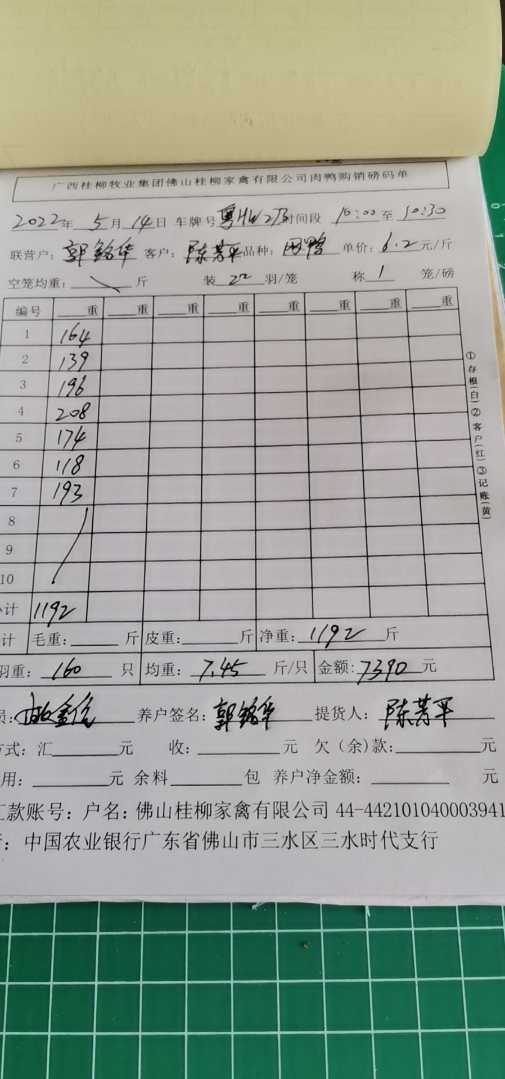 广西桂柳牧业集团佛山桂柳家禽有限公司肉鸭购销磅码单
2022年 5月 14日 车牌号 时间段 10:00 至 10:30
联营户: 郭铭华 客户: 陈芳平 品种: 单价: 6.2 元/斤
空笼均重: 斤 装 22 羽/笼 称 1 笼/磅
编号 重 重 重 重 重 重 重 重
1 164
2 139
3 196
4 208
5 174
6 118
7 193
8
9
10
计 1192
计 毛重: 斤 皮重: 斤 净重: 1192 斤
羽重: 160 只 均重: 7.45 斤/只 金额: 7390 元
员: 养户签名: 郭铭华 提货人: 陈芳平
方式: 汇 元 收: 元 欠(余)款: 元
用: 元 余料 包 养户净金额: 元
汇款账号: 户名: 佛山桂柳家禽有限公司 44-442101040003941
: 中国农业银行广东省佛山市三水区三水时代支行
①存根(白)②客户(红)③记账(黄)